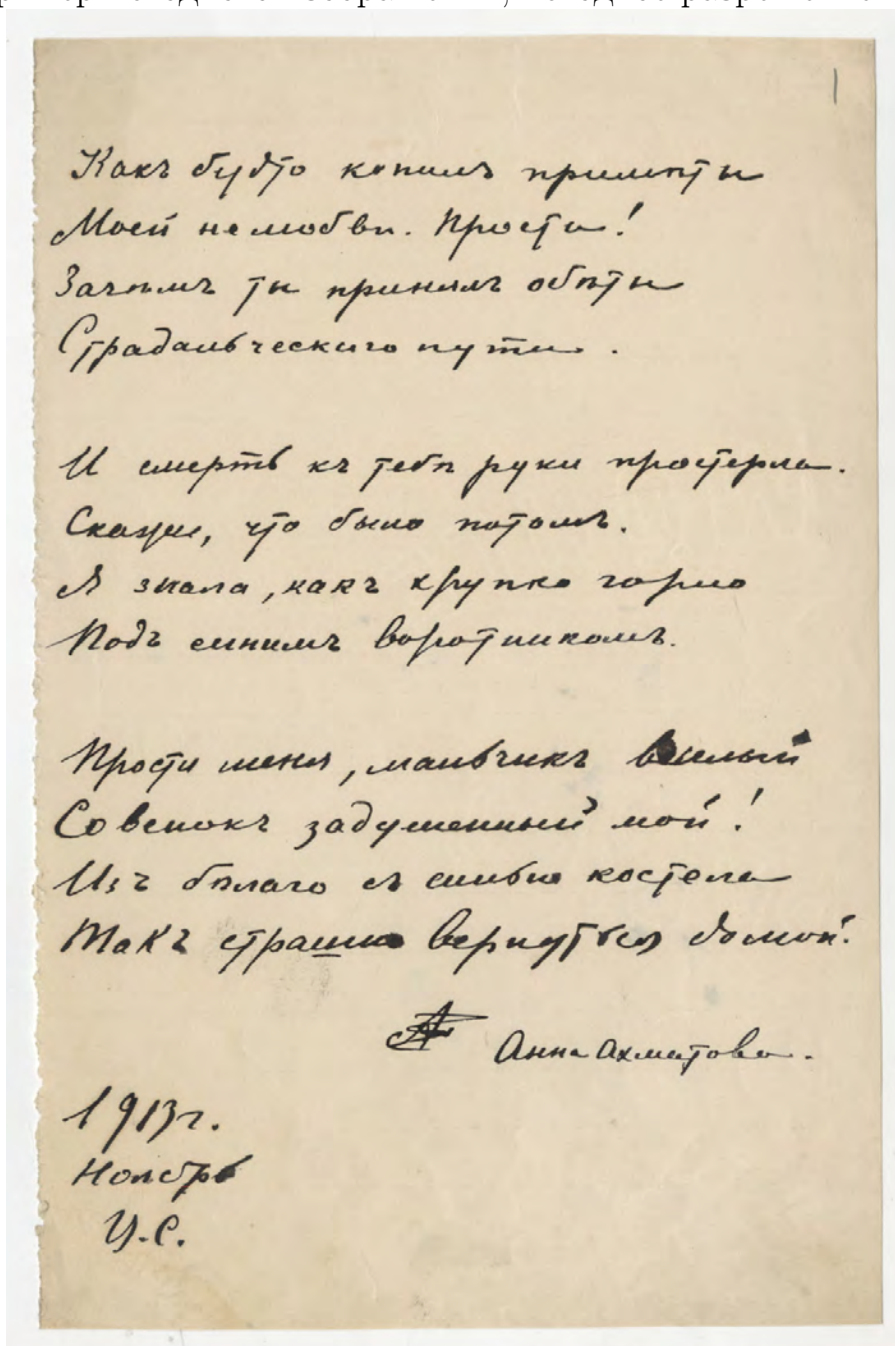 1
Какъ будто копилъ примѣты
Моей нелюбви. Прости!
Зачѣмъ ты принялъ обѣты
Страдальческаго пути.
И смерть къ тебѣ руки простерла.
Скажи, что было потомъ.
Я знала, какъ хрупко горло
Подъ синимъ воротникомъ.
Прости меня, мальчикъ
Совенокъ задушенный мой!
Изъ бѣлаго съ синью костела
Такъ страшно вернуться домой.
Анна Ахматова.
1913 г.
Ноябрь
Ц.С.